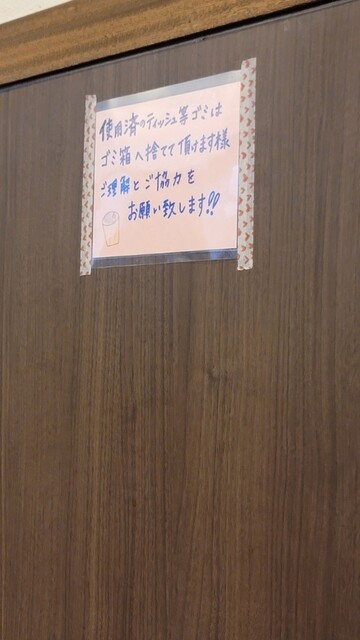 使用済のティッシュ等ゴミは
ゴミ箱へ捨てて頂けます様
ご理解とご協力を
お願い致します!!